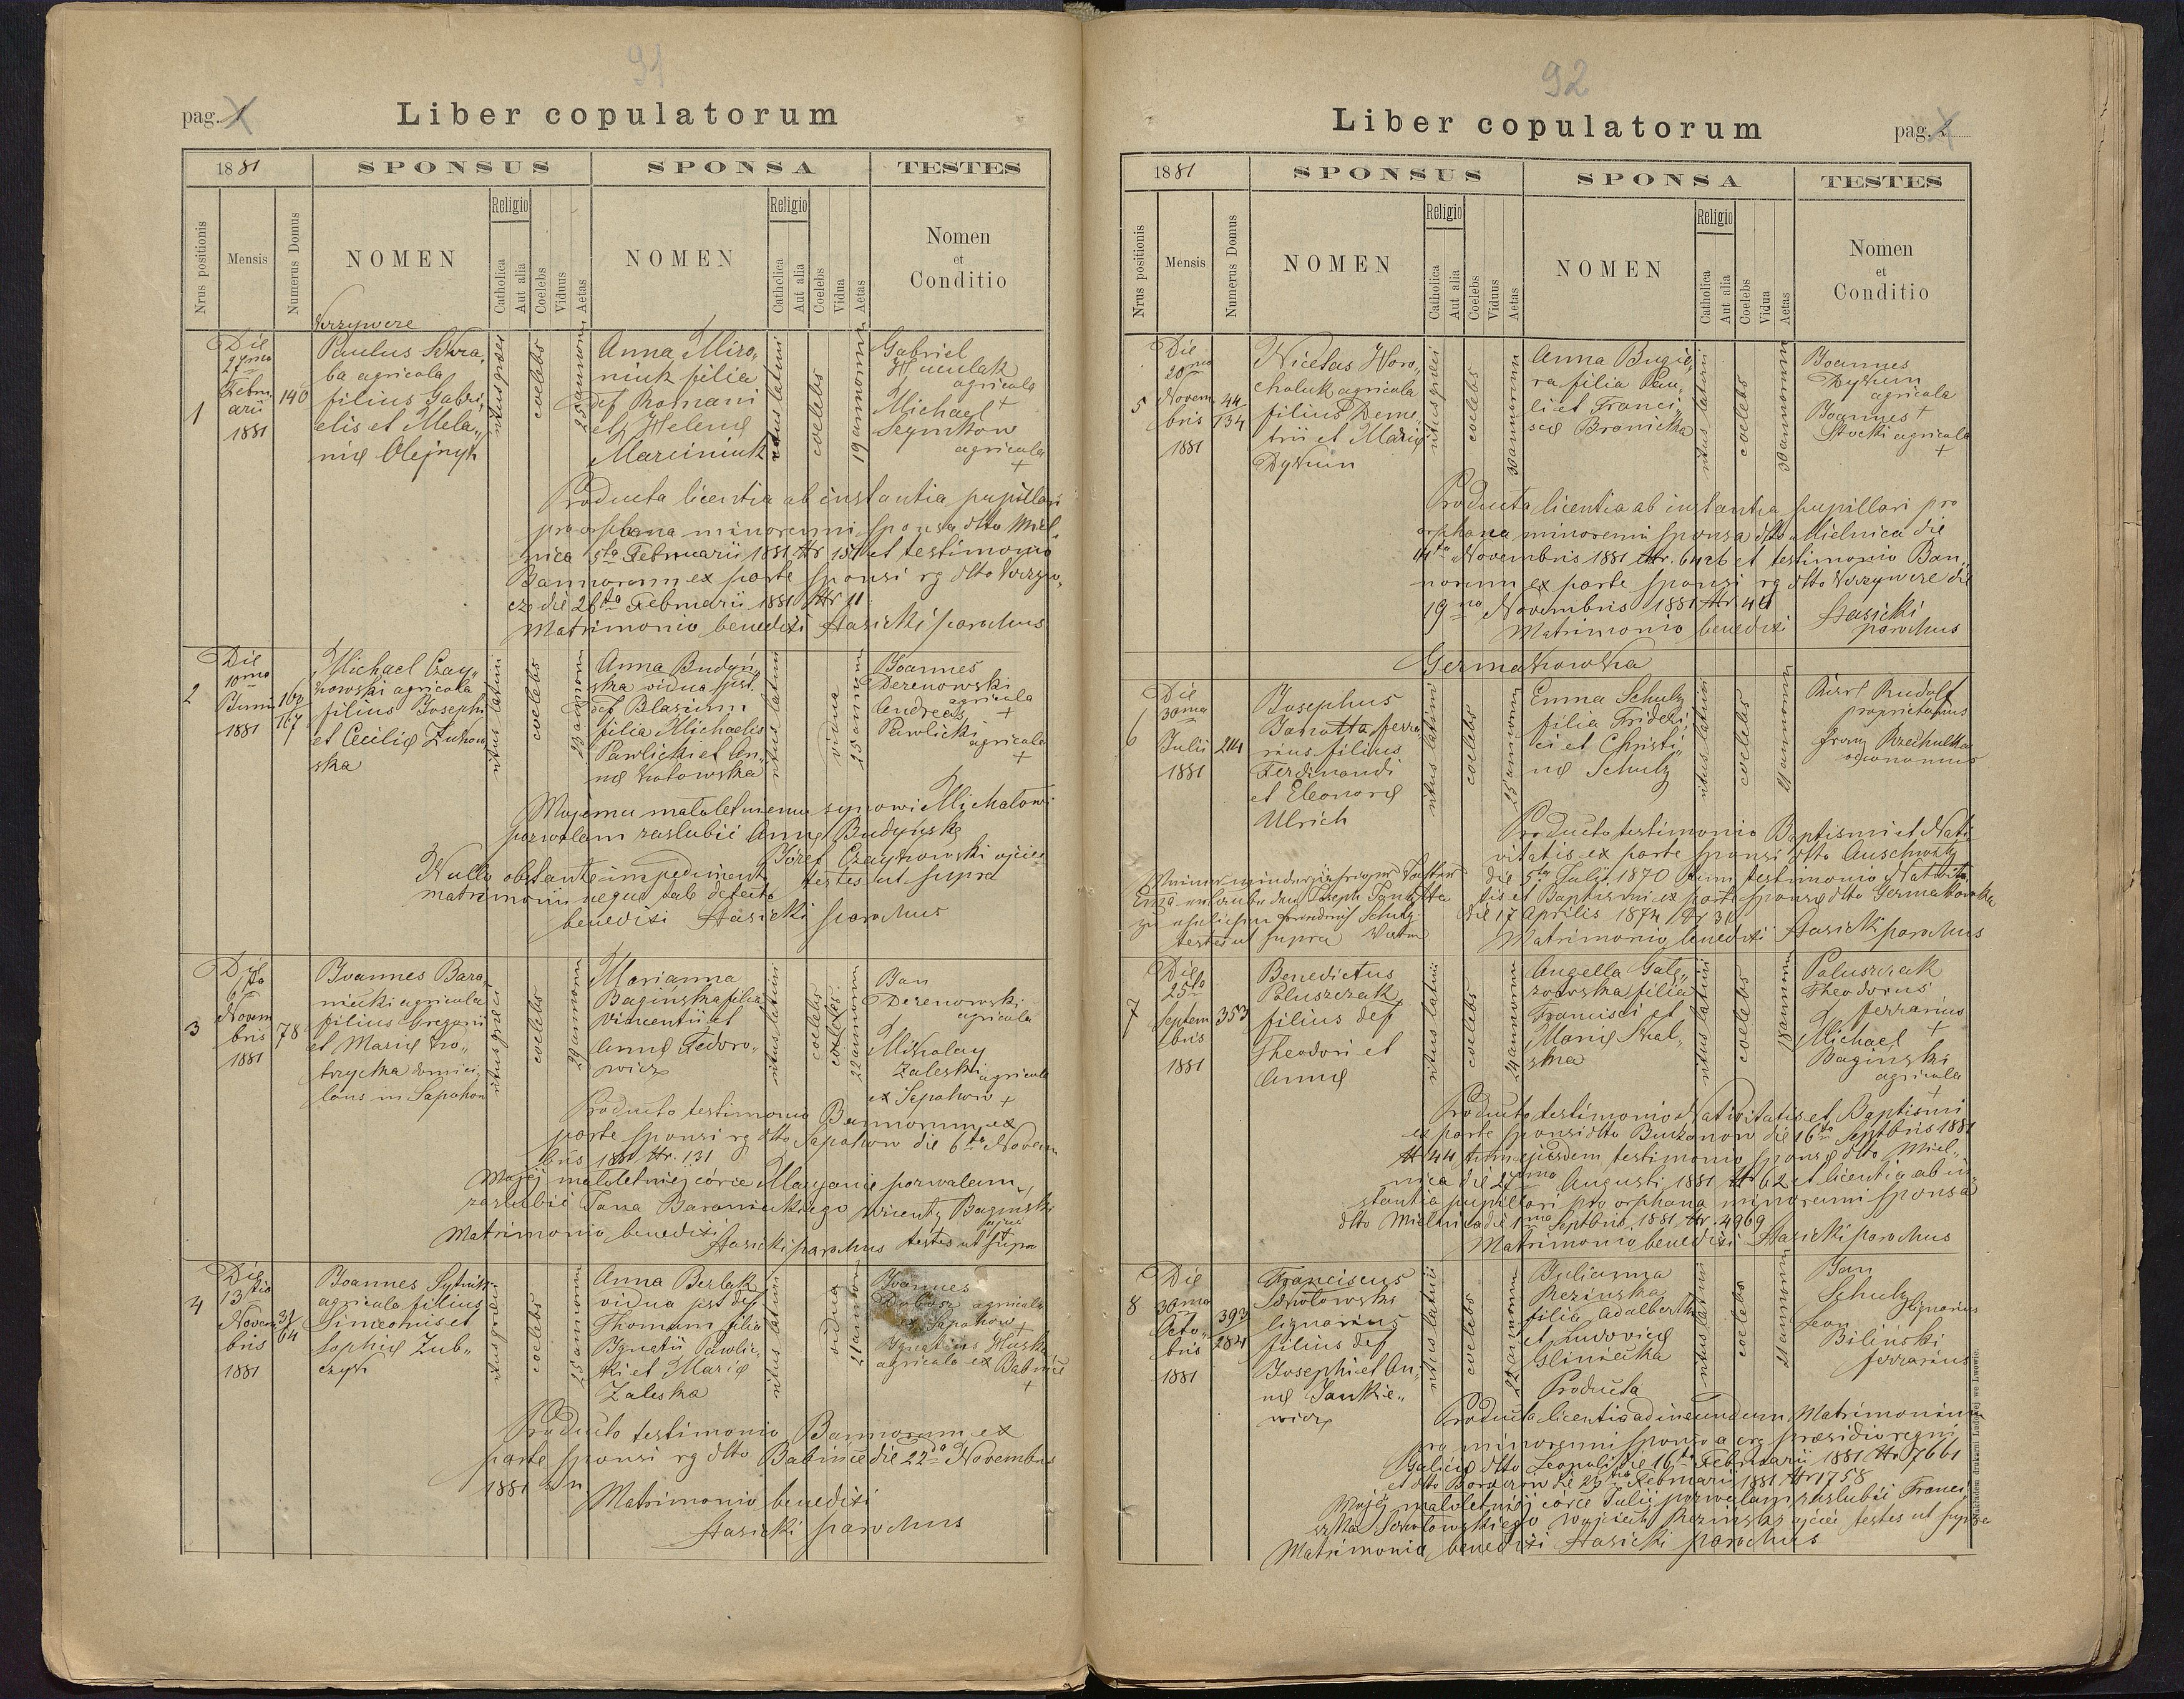 91
pag. 1
Liber copulatorum
1881
SPONSUS
SPONSA
TESTES
Nrus positionis
Mensis
Numerus Domus
NOMEN
Religio
Catholica
Aut alia
Coelebs
Viduus
Aetas
NOMEN
Religio
Catholica
Aut alia
Coelebs
Vidua
Aetas
Nomen
et
Conditio
1
Die
27ma
Febru
arii
1881
140
Paulus Skra„
ba agricola
filius Gabri„
elis et Mela„
nię Olejnyk
ritus graeci
coelebs
25 annorum
Anna Miro„
niuk filia
def Romani
et Helenę
Marciniuk
ritus latini
coelebs
19 annorum
Gabriel
Huculak
agricola
+
Michael
Seymkow
agricola
+
Producta licentia ab instantia pupillari
pro orphana minorenni sponsa dtto Miel„
nica 5ta Februarii 1881 Nr 151 et testimonio
Bannorum ex parte sponsi rg dtto
die 26ta Februarii 1881 Nr 11
Matrimonio benedixi Stasicki parochus
2
Die
10ma
Junii
1881
163
167
Michael Czay„
kowski agricola
filius Josephi
et Cecilię Żukow
ska
ritus latini
coelebs
23 annorum
Anna Budyń„
ska vidua pst.
def Blasium
filia Michaelis
Pawlicki et An„
nę Kotowska
ritus latini
vidua
25 annorum
Joannes
Derenowski
agricola
+
Andreas
Pawlicki
agricola
+
Mojemu małoletniemu synowi Michałowi
pozwalam zaslubić Annę Budyńską
Józef Czaykowski ojciec
Nullo obstante impedimento testes ut supra
matrimonii neque tale detecto
benedixi Stasicki parochus
3
Die
6ta
Novem
bris
1881
78
Joannes Bara„
niecki agricola
filius Gregorii
et Marię Ko„
trycka domici„
lans in Sapohow
ritus graeci
coelebs
29 annorum
Marianna
Bagińska filia
Vincentii et
Annę Fedoro„
wicz
ritus latini
coelebs
coelebs
22 annorum
Jan
Derenowski
agricola
Mikołay
Zaleski agricola
ex Sapohow +
Producto testimonio Bannorum ex
parte sponsi rg dtto Sapohow die 6ta Novem
bris 1881 Nr. 131
Mojej małoletniej córce Maryanie pozwalam
zaslubić Jana Baranieckiego Wicenty Bagiński
ojciec
Matrimonio benedixi
Stasicki parochus testes ut supra
4
Die
13tio
Novem
bris
1881
31
64
Joannes Sytnik
agricola filius
Simeonis et
Sophię Zub„
czyk
ritus graeci
coelebs
25 annorum
Anna Berlak
vidua pst def
Thomam filia
Ignatii Pawlic„
ki et Marię
Zaleska
ritus latini
vidua
21 annorum
Joannes
agricola
ex Sapohow +
Ignatius
agricola ex Babince
+
Producto testimonio Bannorum ex
parte sponsi rg dtto Babince die 22da Novembris
1881
Matrimonio benedixi
Stasicki parochus
92
Liber copulatorum
pag. 2
1881
SPONSUS
SPONSA
TESTES
Nrus positionis
Mensis
Numerus Domus
NOMEN
Religio
Catholica
Aut alia
Coelebs
Viduus
Aetas
NOMEN
Religio
Catholica
Aut alia
Coelebs
Vidua
Aetas
Nomen
et
Conditio
5
Die
20ma
Novem
bris
1881
44
134
Nicetas Horo„
choluk agricola
filius Deme„
trii et Marię
Dykun
ritus graeci
coelebs
30 annorum
Anna Bugie„
ra filia Pau„
li et Franci„
scę Branicka
ritus latini
coelebs
30 annorum
Joannes
Dykun
agricola
+
Joannes
Stocki agricola
+
Producta licentia ab instantia pupillari pro
orphana minorenni sponsa dtto Mielnica die
14ta Novembris 1881 Nr. 6426 et testimonio Ban„
norum ex parte sponsi rg dtto
19na Novembris 1881 Nr 46
Matrimonio benedixi
Stasicki
parochus
Germakowka
6
Die
30ma
Julii
1881
211
Josephus
Janotta ferra
rius filius
Ferdinandi
et Eleonorę
Ulrich
ritus latini
coelebs
25 annorum
Emma Schulz
filia Frideri„
ci et Christi„
nę Schulz
ritus latini
coelebs
Karl Rudolf
proprietarius
Franz Krzehulka
oeconomus
Producto testimonio Baptismi et Nati
vitatis ex parte sponsi dtto Auschwitz
die 5ta Julij 1870 tum testimonio Nativita
tis et Baptismi ex parte sponsę dtto Germakowka
die 17 Aprilis 1874 Nr 31
Matrimonio benedixi Stasicki parochus
Meiner minderjährigen Tochter
Ema erlaube den Joseph Janotta
zu ehelichen Friedrich Schulz
testes ut supra Vater
7
Die
25to
Septem
bris
1881
353
Benedictus
Poluszczak
filius def
Theodori et
Annę
ritus latini
coelebs
24 annorum
Angella Gałę„
zowska filia
Francisci et
Marię Skal„
ska
ritus latini
coelebs
18 annorum
Poluszczak
Theodorus
ferrarius
+
Michael
Bagiński
agricola
+
Producto testimonio Nativitatis et Baptismi
ex parte sponsi dtto Burzanow die 16ta Septbris 1881
Nr 44, tum ejusdem testimonio sponsę dtto Miel„
nica die 27ma Augusti 1881 Nr 62 et licentia ab in„
stantia pupillari pro orphana minorenni sponsa
dtto Mielnica die 1ma Septbris 1881 Nr. 4969
Matrimonio benedixi Stasicki parochus
8
Die
30ma
Octo„
bris
1881
393
284
Franciscus
lignarius
filius def
Josephi et An„
nę Jankie„
wicz
ritus latini
coelebs
22 annorum
Julianna
Rezinska
filia Adalberthi
et Ludovicę
Gliniecka
ritus latini
coelebs
21 annorum
Jan
Schulz
lignarius
Leon
Biliński
ferrarius
Producta
Producta licentia ad ineundum Matrimonium
pro minorenni sponso a praesidio regni
Galicię dtto Leopoli die 16ta Februarii 1881 Nr 7661
et dtto Borszczow die 26ta Februarii 1881 Nr 1758
Mojej małoletniej córce Julij pozwalam zaslubić Franci
szka Wojciech Rezinski ojciec testes ut supra
Matrimonio benedixi Stasicki parochus
Nakładem drukarni Ludowej we Lwowie.